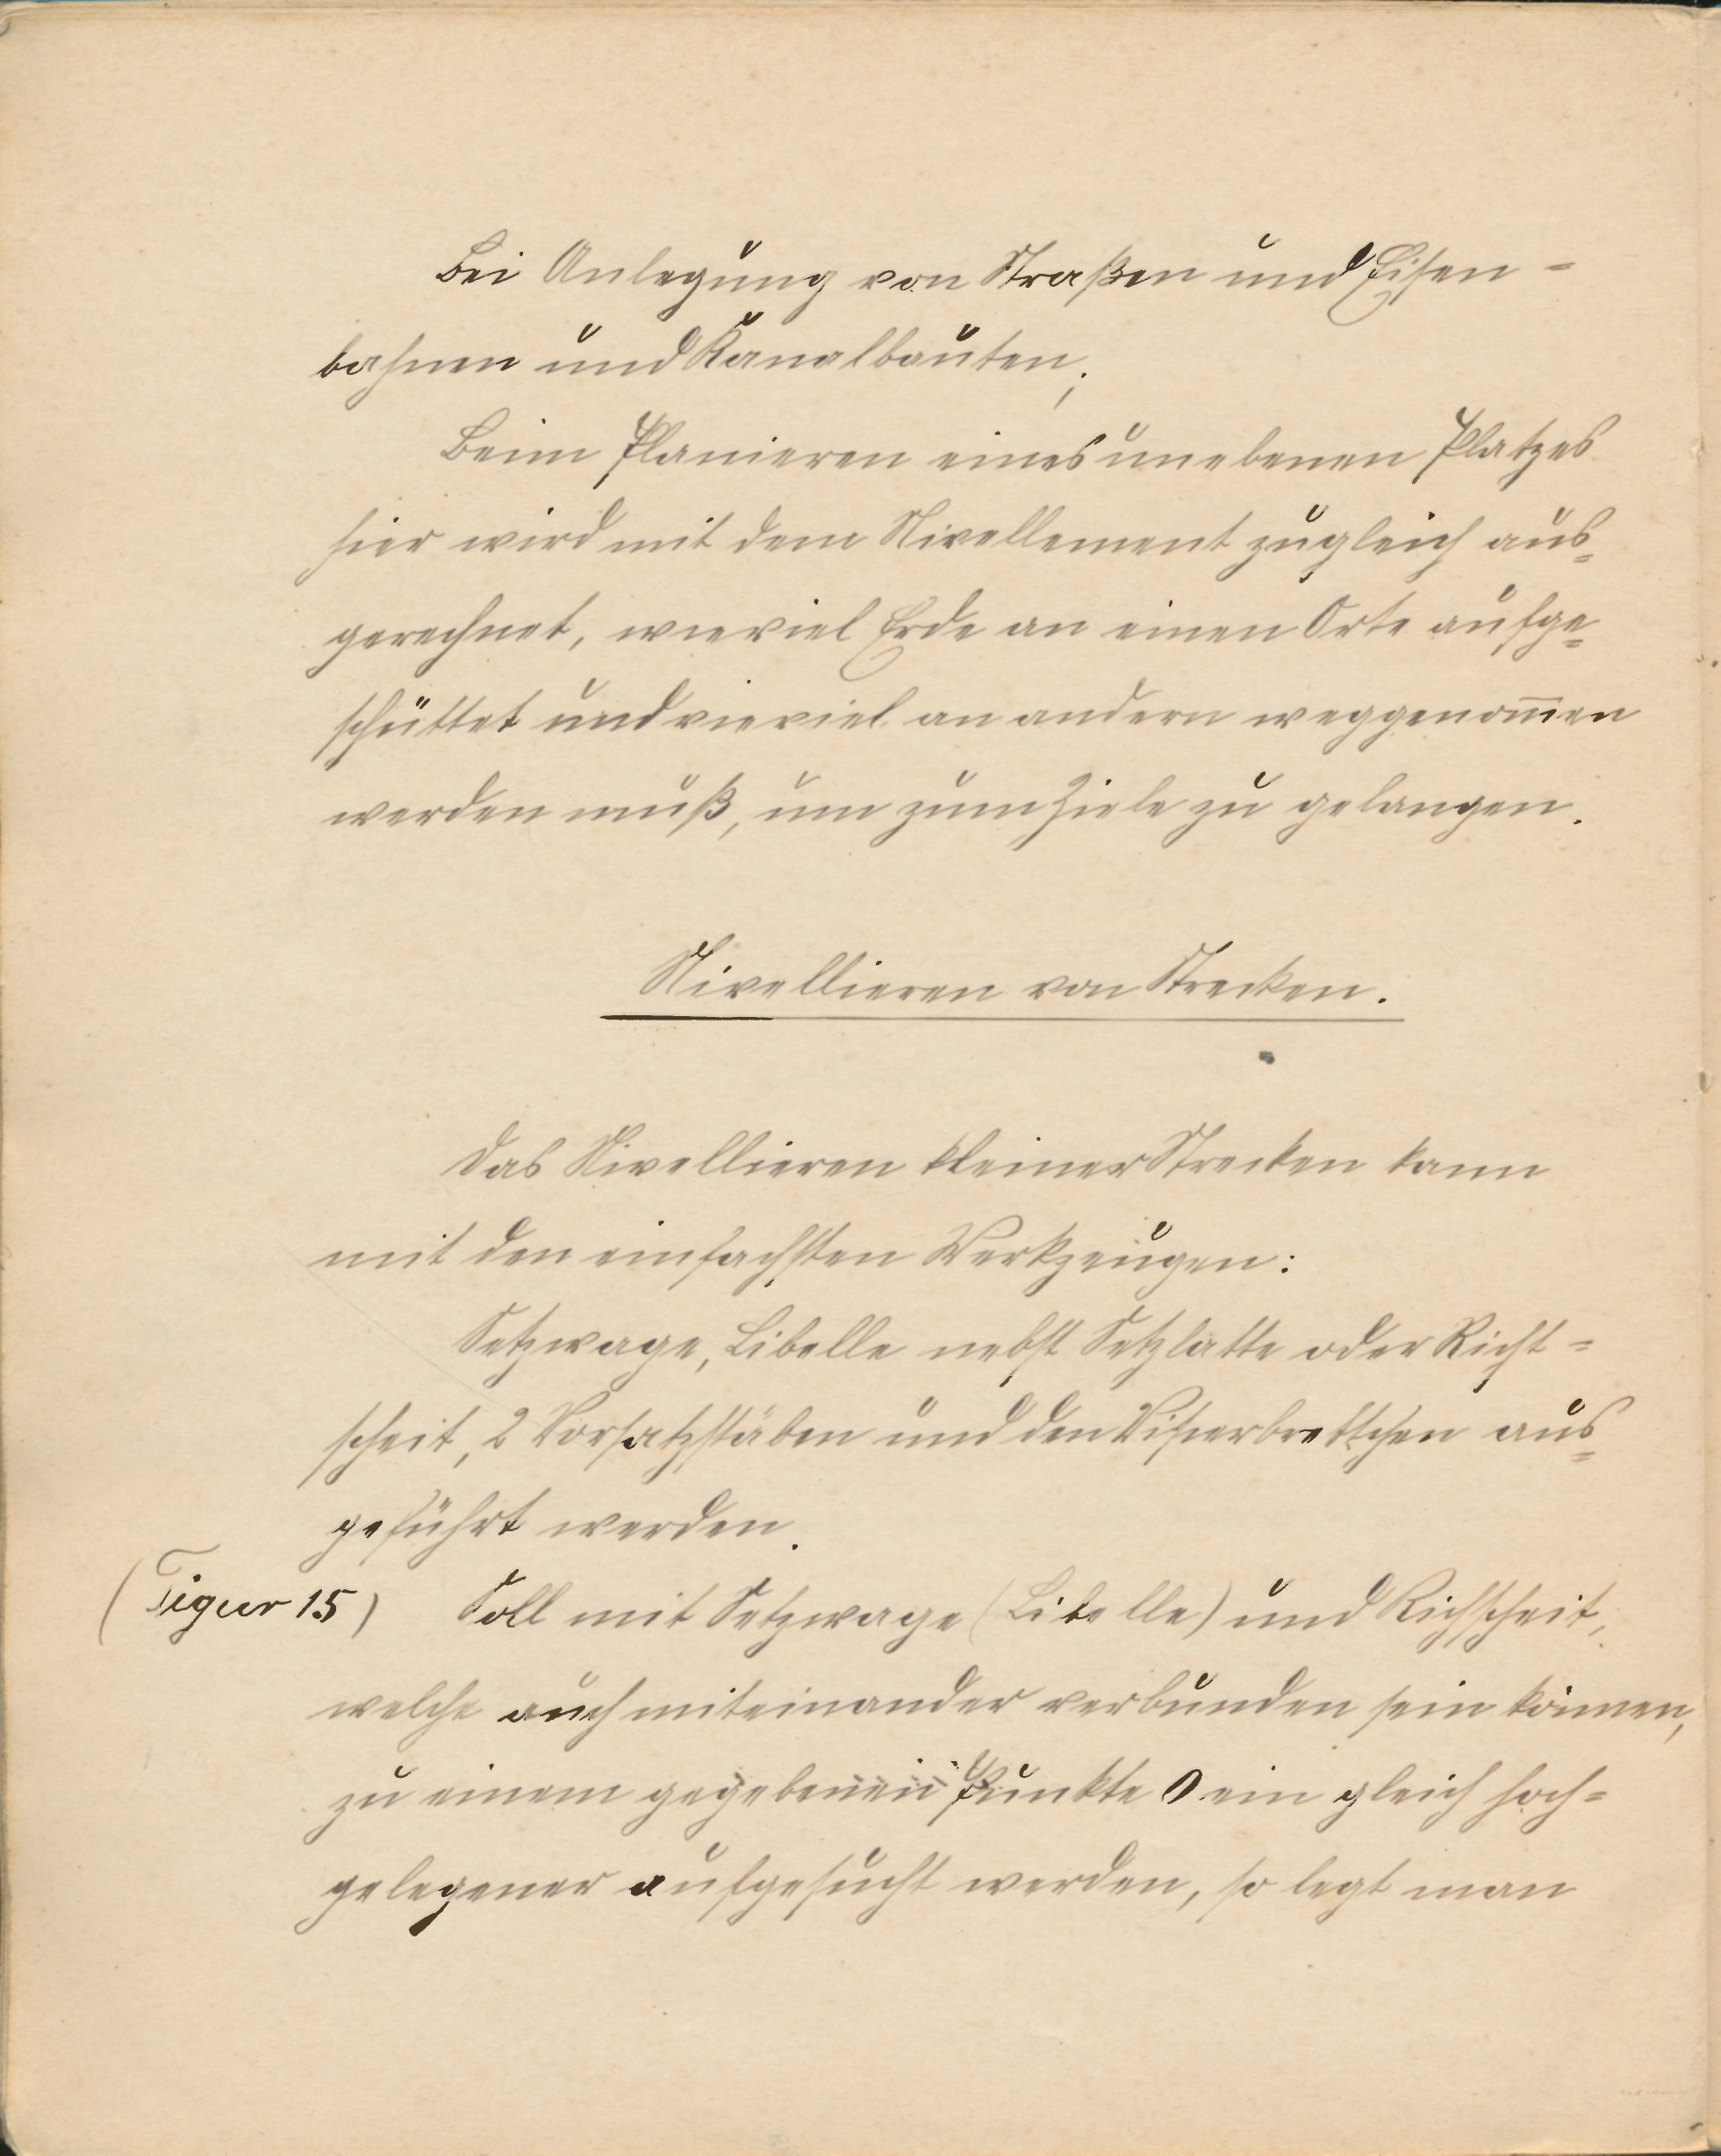 Bei Anlegung von Straßen und Eisen-
bahnen und Kanalbauten;
Beim Planieren eines unebenen Platzes
hier wird mit dem Nivellement zugleich aus-
gerechnet, wieviel Erde an einen Orte aufge-
schüttet und vieviel an andern weggenom̄en
werden muß, um zum Ziele zu gelangen.
Nivellieren von Strecken.
Das Nivellieren kleiner Strecken kann
mit den einfachsten Werkzeugen:
Setzwage, Libelle nebst Setzlatte oder Richt-
scheit, 2 Vorsatzstäben und den Visierbrettchen aus-
geführt werden.
(Figur 15) Soll mit Setzwage (Libelle) und Richscheit,
welche auch miteinander verbunden sein können,
zu einem gegebenen Punkte O ein gleich hoch-
gelegener aufgesucht werden, so legt man